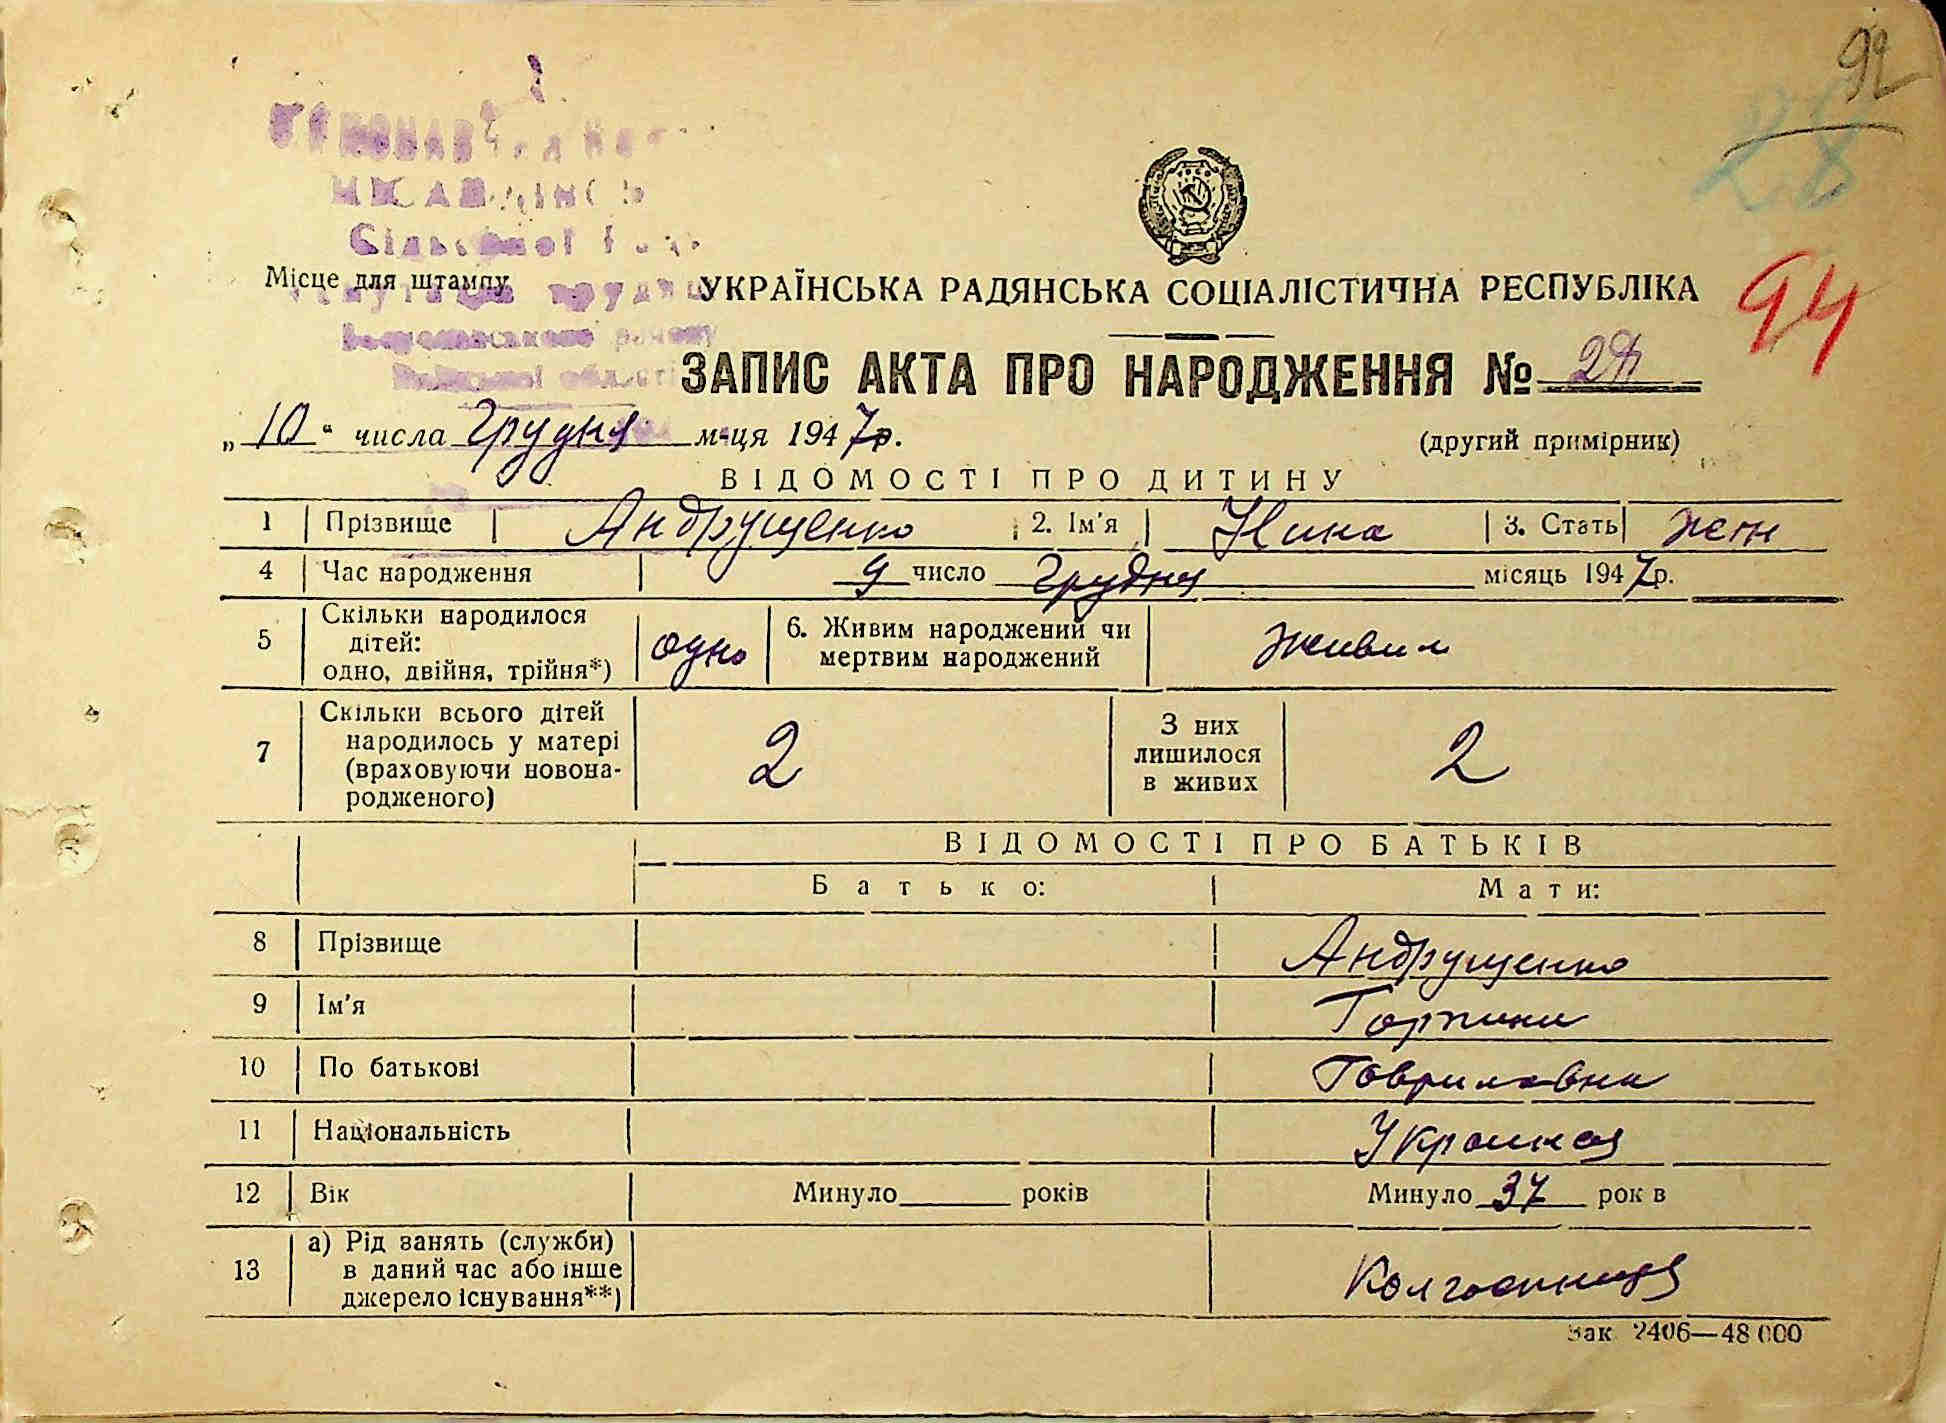 92
28
94
Сільської
Місце для штампу
УКРАЇНСЬКА РАДЯНСЬКА СОЦІАЛІСТИЧНА РЕСПУБЛІКА
ЗАПИС АКТА ПРО НАРОДЖЕННЯ №
„ 10 “ числа Грудня м-ця 1947р.
(другий примірник)
ВІДОМОСТІ ПРО ДИТИНУ
1 Прізвище Андрущенко 2. Ім'я Нина 3. Стать жен
4 Час народження 9 число грудня місяць 1947р.
5 Скільки народилося
дітей:
одно, двійня, трійня*)
одно
6. Живим народжений чи
мертвим народжений
живим
7 Скільки всього дітей
народилось у матері
(враховуючи новона-
родженого)
2
З них
лишилося
в живих
2
ВІДОМОСТІ ПРО БАТЬКІВ
Батько: Мати:
8 Прізвище Андрущенко
9 Ім'я Горпина
10 По батькові Гавриловна
11 Національність
12 Вік Минуло років Минуло 37 рок в
13 а) Рід занять (служби)
в даний час або інше
джерело існування**)
Колгоспниця
Зак 2406—48 000